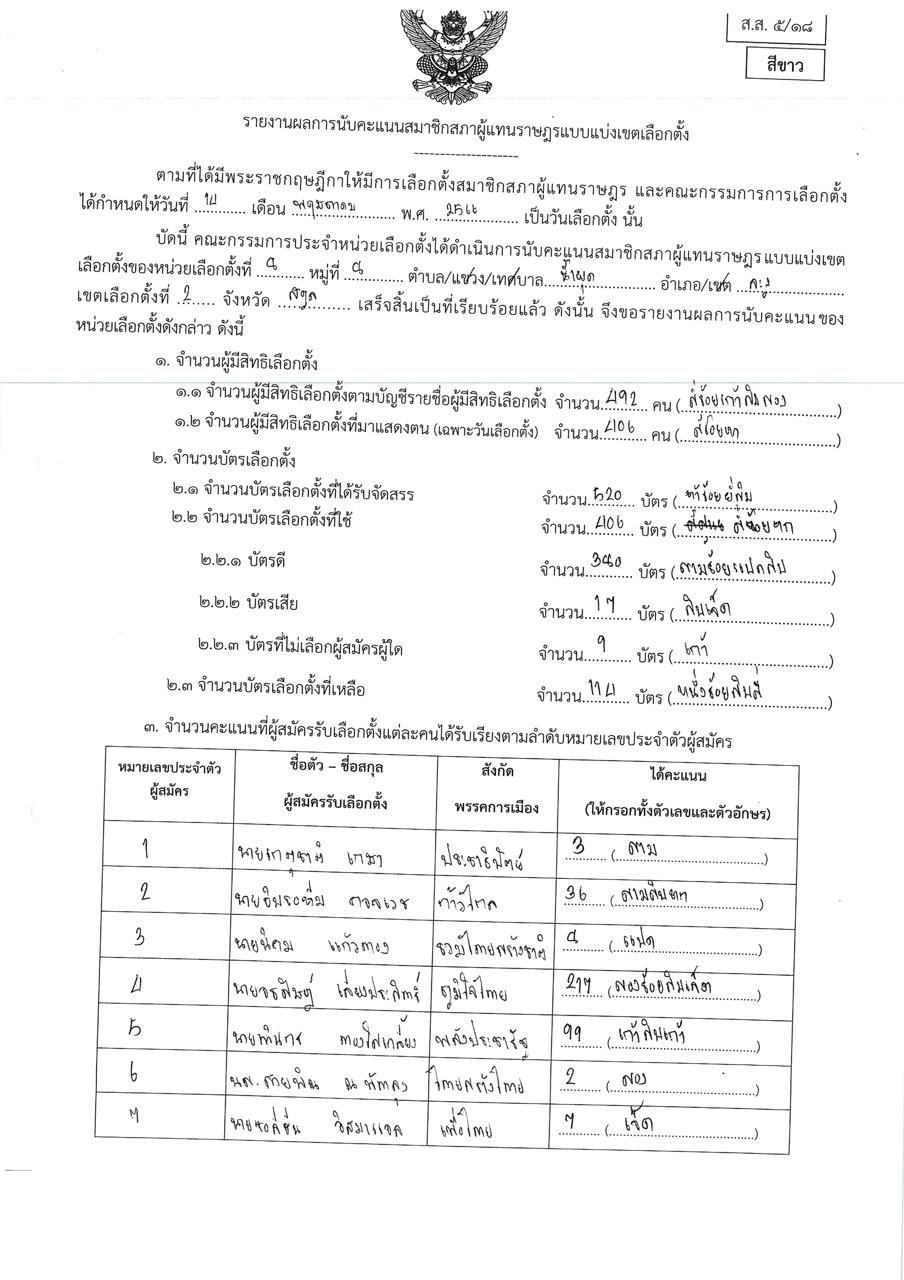 ส.ส. ๕/๑๘
สีขาว
รายงานผลการนับคะแนนสมาชิกสภาผู้แทนราษฎรแบบแบ่งเขตเลือกตั้ง
--------------------
ตามที่ได้มีพระราชกฤษฎีกาให้มีการเลือกตั้งสมาชิกสภาผู้แทนราษฎร และคณะกรรมการการเลือกตั้ง
ได้กำหนดให้วันที่ 14 เดือน พฤษภาคม พ.ศ. 2566 เป็นวันเลือกตั้ง นั้น
บัดนี้ คณะกรรมการประจำหน่วยเลือกตั้งได้ดำเนินการนับคะแนนสมาชิกสภาผู้แทนราษฎรแบบแบ่งเขต
เลือกตั้งของหน่วยเลือกตั้งที่ 8 หมู่ที่ 8 ตำบล/แขวง/เทศบาล น้ำผุด อำเภอ/เขต ละงู
เขตเลือกตั้งที่ 2 จังหวัด สตูล เสร็จสิ้นเป็นที่เรียบร้อยแล้ว ดังนั้น จึงขอรายงานผลการนับคะแนนของ
หน่วยเลือกตั้งดังกล่าว ดังนี้
๑. จำนวนผู้มีสิทธิเลือกตั้ง
๑.๑ จำนวนผู้มีสิทธิเลือกตั้งตามบัญชีรายชื่อผู้มีสิทธิเลือกตั้ง จำนวน 492 คน (สี่ร้อยเก้าสิบสอง)
๑.๒ จำนวนผู้มีสิทธิเลือกตั้งที่มาแสดงตน (เฉพาะวันเลือกตั้ง) จำนวน 406 คน (สี่ร้อยหก)
๒. จำนวนบัตรเลือกตั้ง
๒.๑ จำนวนบัตรเลือกตั้งที่ได้รับจัดสรร จำนวน 520 บัตร (ห้าร้อยยี่สิบ)
๒.๒ จำนวนบัตรเลือกตั้งที่ใช้ จำนวน 406 บัตร (สี่ร้อยหก)
๒.๒.๑ บัตรดี จำนวน 380 บัตร (สามร้อยแปดสิบ)
๒.๒.๒ บัตรเสีย จำนวน 17 บัตร (สิบเจ็ด)
๒.๒.๓ บัตรที่ไม่เลือกผู้สมัครผู้ใด จำนวน 9 บัตร (เก้า)
๒.๓ จำนวนบัตรเลือกตั้งที่เหลือ จำนวน 114 บัตร (หนึ่งร้อยสิบสี่)
๓. จำนวนคะแนนที่ผู้สมัครรับเลือกตั้งแต่ละคนได้รับเรียงตามลำดับหมายเลขประจำตัวผู้สมัคร
หมายเลขประจำตัว ชื่อตัว – ชื่อสกุล สังกัด ได้คะแนน
ผู้สมัคร ผู้สมัครรับเลือกตั้ง พรรคการเมือง (ให้กรอกทั้งตัวเลขและตัวอักษร)
1 ประชาธิปัตย์ 3 (สาม)
2 ก้าวไกล 36 (สามสิบหก)
3 นายนิคม แก้วทอง รวมไทยสร้างชาติ 8 (แปด)
4 ภูมิใจไทย 217 (สองร้อยสิบเจ็ด)
5 พลังประชารัฐ 99 (เก้าสิบเก้า)
6 น.ส. สายพิณ ณ พัทลุง ไทยสร้างไทย 2 (สอง)
7 เพื่อไทย 7 (เจ็ด)